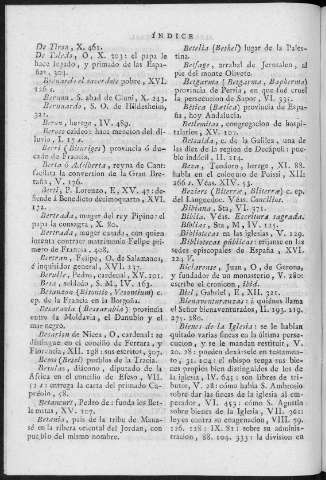 ÍNDICE
De Tiron, X. 462.
De Toledo, O, X. 203: el papa le
hace legado, y primado de las Espa-
ñas, 303.
Bernardo el sacerdote pobre, XVI.
126 s.
Bernon, S. abad de Cluni, X. 243.
Bernuardo, S. O. de Hildesheim,
322.
Beron, herege, IV. 489.
Beroso caldeo: hace mencion del di-
luvio, I. 15 s.
Berri (Bituriges) provincia ó du-
cado de Francia.
Berta ó Aldiberta, reyna de Cant:
facilita la conversion de la Gran Bre-
taña, V. 176.
Berti, P. Lorenzo, E, XV. 47: de-
fiende á Benedicto decimoquarto, XVI.
272.
Bertrada, muger del rey Pipino: el
papa la consagra, X. 80.
Bertrada, muger casada, con quien
intenta contraer matrimonio Felipe pri-
mero de Francia, 408.
Bertran, Felipe, O. de Salamanca,
é inquisidor general, XVI. 237.
Berulle, Pedro, cardenal, XV. 201.
Besa, soldado, S. M., IV. 163.
Besanzon (Bisontio, Vesontium)
ep. de la Francia en la Borgoña.
Besarabia (Bessarabia) provincia
entre la Moldavia, el Danubio y el
mar negro.
Besarion de Nicea, O, cardenal: se
distingue en el concilio de Ferrara, y
Florencia, XII. 198: sus escritos, 307.
Besos (Bessi) pueblos de la Tracia.
Besulas, diácono, diputado de la
África en el concilio de Efeso, VII.
(12: entrega la carta del primado Ca-
preólo, 58.
Betancurt, Pedro de: funda los Bet-
lemitas, XV. 207.
Betania, pais de la tribu de Manas-
sé en la ribera oriental del Jordan, con
pueblo del mismo nombre.
Betelia (Bethel) lugar de la Pales-
tina.
Betfage, arrabal de Jerusalen, al
pie del monte Oliveto.
Betgarma (Betgarma, Bapherma)
provincia de Persia, en que fué cruel
la persecucion de Sapor, VI. 335.
Bética (Bætica) provincia de Espa-
ña, hoy Andalucía.
Betlemitas, congregacion de hospi-
talarios, XV. 207.
Betsaida, c. de la Galilea, una de
las diez de la region de Decápoli: pue-
blo infidel, II. 214.
Beza, Teodoro, herege, XI. 88.
habla en el coloquio de Poissi, XII:
266 s. Véas. XIV. 43.
Beziers (Biterra, Bliterræ) c. ep.
del Languedoc. Véas. Concilios.
Bibiana, Sta, VI. 371.
Biblia. Véas. Escritura sagrada.
Biblias, Sta, M, IV. 125.
Bibliotecas en las iglesias, V. 229.
Bibliotecas públicas: erijanse en las
sedes episcopales de España, XVI.
224 V.
Biclarense, Juan, O, de Gerona,
y fundador de un monasterio, V. 280:
escribe el cronicon, ibid.
Biel, Gabriel, E, XII. 321.
Bienaventuranzas: á quiénes llama
el Señor bienaventurados, II. 193. 219.
271. 286.
Bienes de la Iglesia: se le habian
quitado varias fincas en la última perse-
cucion, y se le mandan restituir, V.
20. 28: pueden dexársele en testamen-
to, 31. 204: el obispo tenga sus bie-
nes propios bien distinguidos de los de
la iglesia, IV. 645: son libres de tri-
butos, V. 28: cómo habla S. Ambrosio
sobre dar las fincas de la iglesia al em-
perador, VI. 453: cómo S. Agustin
sobre bienes de la Iglesia, VII. 361:
leyes contra su enagenacion, VIII. 59.
126. 128: IX. 81: sobre su adminis-
tracion, 88. 109. 333: la division en